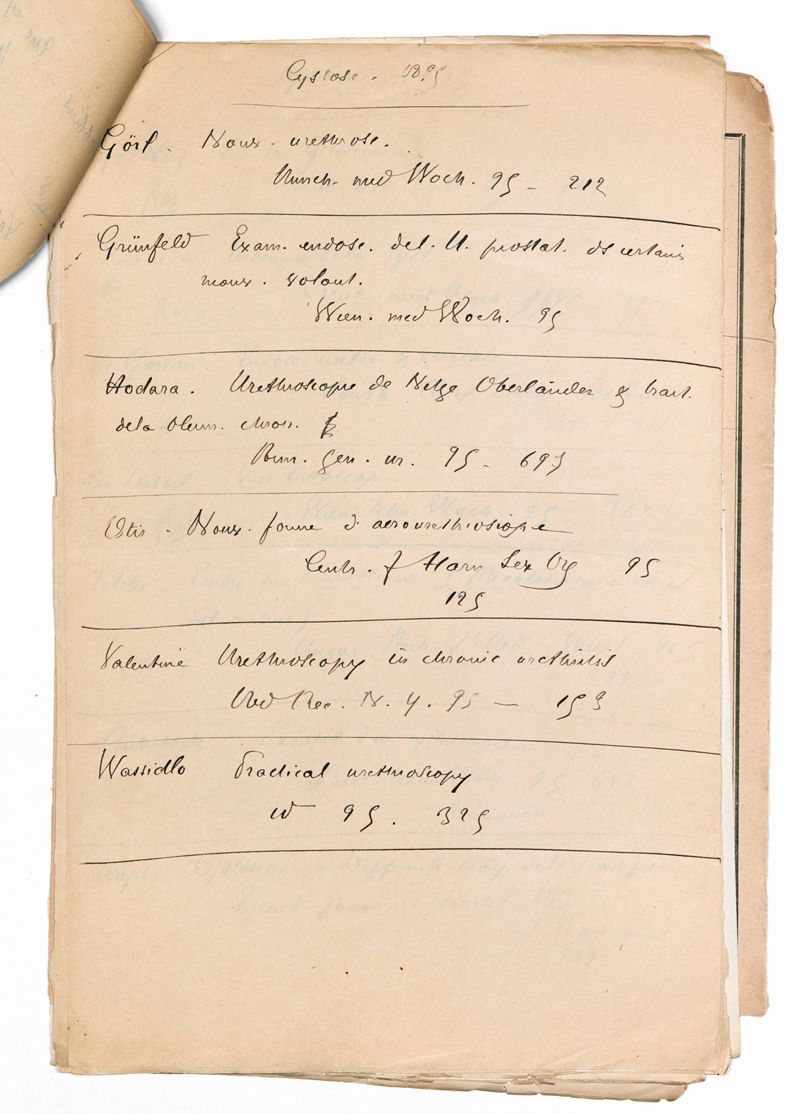 Cystosc. 1895
Görl. Nouv. urethrosc.
Münch. med Woch. 95 - 212
Grünfeld Exam. endosc. del. U. prostat. ds certains
mouv. volont.
Wien. med Woch. 95
Hodara. Urethroscopie de Nitze Oberländer & trait.
dela blenn. chron.
Ann. gen. ur. 95. 697
Otis Nouv. forme d'aerourethroscope
Centr. f Harn Sex Org 95
125
Valentine Urethroscopy in chronic urethritis
Med Rec. N. Y. 95 — 153
Wassidlo Practical urethroscopy
id 95. 325